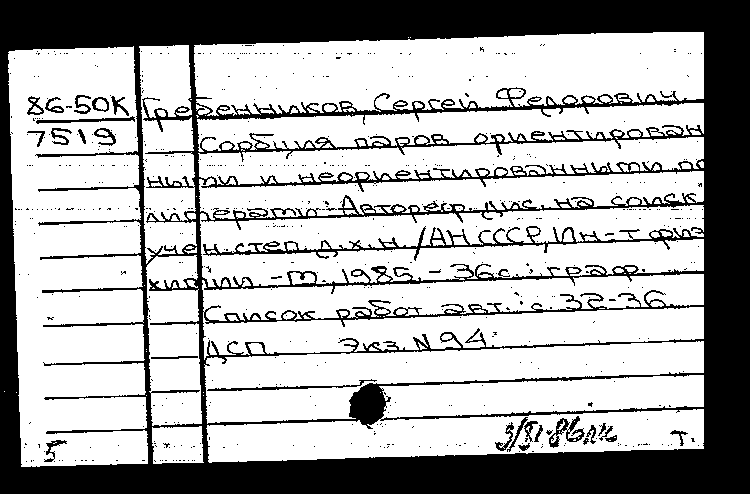 86-50К Гребенников, Сергей Федорович.
7519 Сорбция паров ориентирован
ными и неориентированными по
лимерами: Автореф. дис. на соиск
учен. степ. д.х.н /АН СССР, Ин-т физ
химии. -М., 1985. - 36с.: граф.
Список работ авт.: с. 32-36.
ДСП. Экз. N 94.
5 Т.